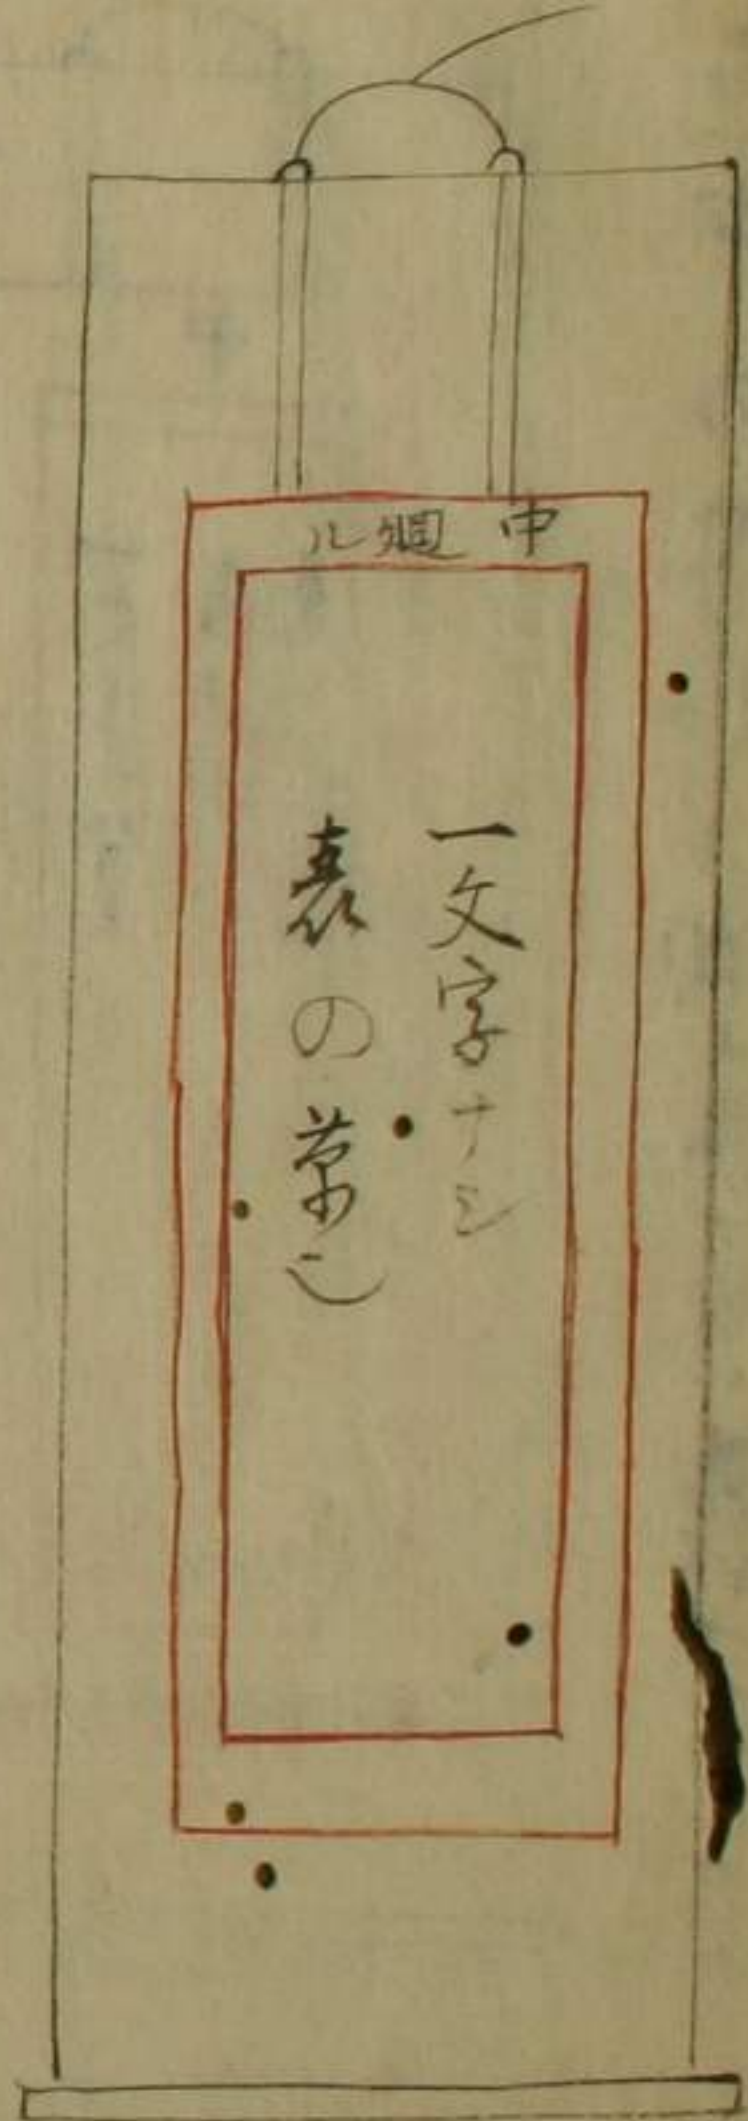 中廻ル
一文字ナシ
表の草也